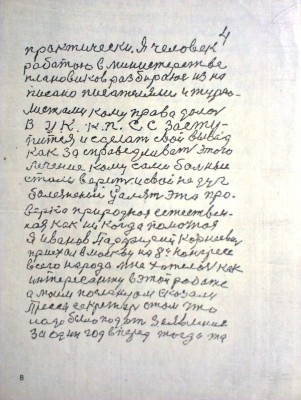 4
практически. Я человек
работаю в министерстве
плановиков разбираюсь из на
писано писателями и журна
листами кому права долог
В ЦК. К.П. С С засту-
пится и сделат свой вывод
как за справедливать этого
лечение кому сами больные
стали верить свой не дуг
болезний удалят эта про-
верка природная естествен-
ная как ни когда помогая
Я Иванов Порфирий Корнеевич
приехал в москву на 8й конгресс
всего народа мне хотелось как
интересанту в этой работе
а моим посланцам сказали
Пресса секретар о том что
надо было подат заявление
за один год вперед тогда та
8